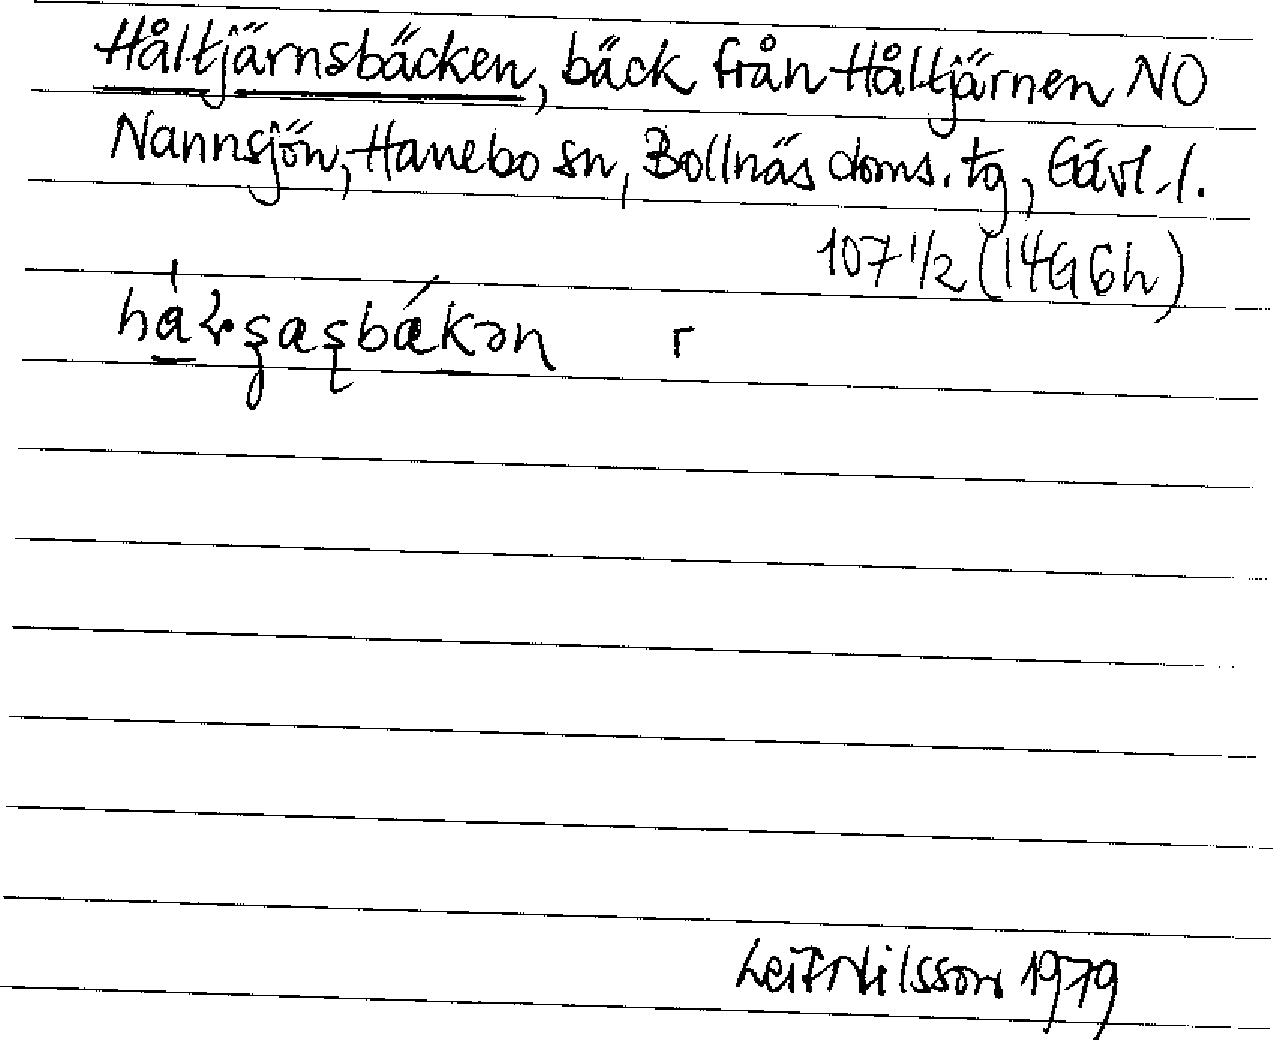 Håltjärnsbäcken, bäck från Håltjärnen NO
Nannsjön, Hanebo sn, Bollnäs doms. tg, Gävl. l.
107 1/2 (14G 6h)
r
Leif Nilsson 1979